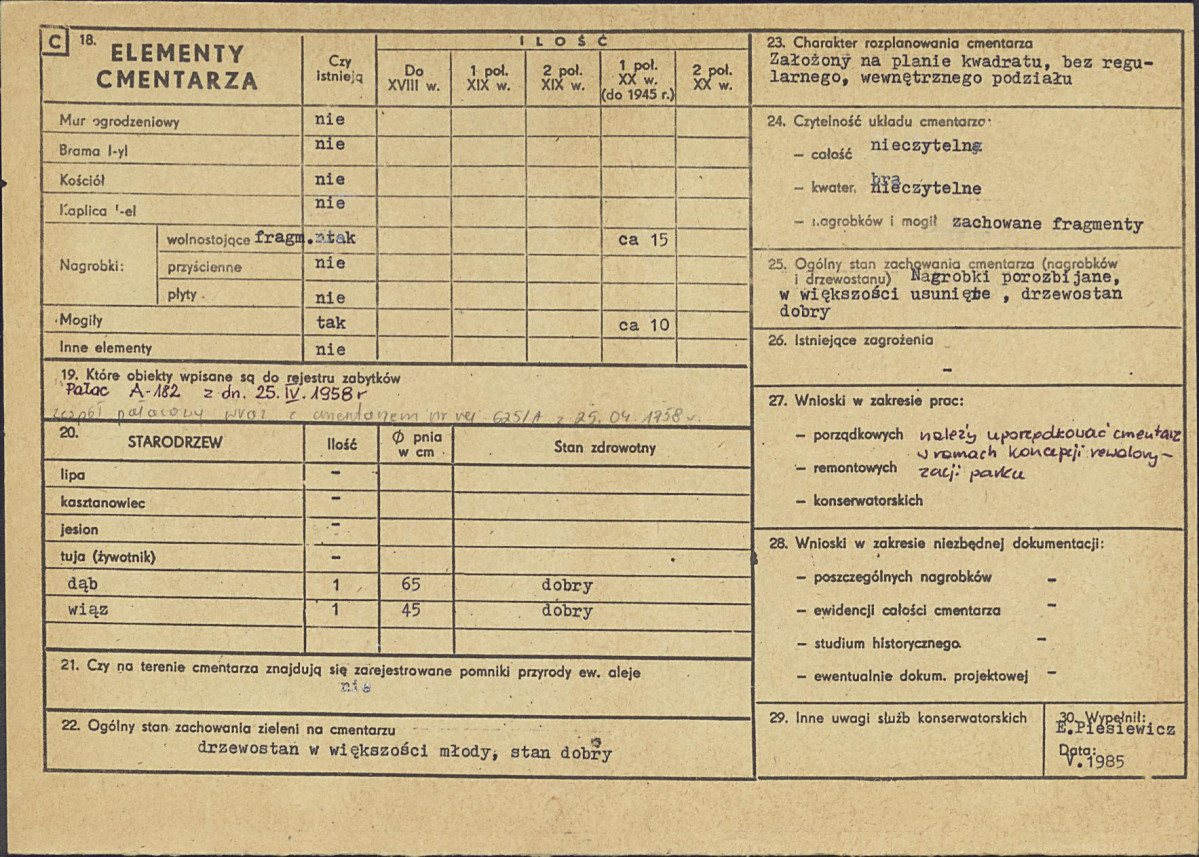 C 18. ELEMENTY CMENTARZA
Czy istnieją
ILOŚĆ
Do XVIII w.
1 poł. XIX w.
2 poł. XIX w.
1 poł. XX w. (do 1945 r.)
2 poł. XX w.
Mur ogrodzeniowy nie
Brama nie
Kościół nie
Kaplica nie
Nagrobki:
wolnostojące fragm. tak ca 15
przyścienne nie
płyty nie
Mogiły tak ca 10
Inne elementy nie
19. Które obiekty wpisane są do rejestru zabytków
Pałac A-182 z dn. 25.IV.1958 r
zespół pałacowy wraz z cmentarzem nr rej 625/A z 25.04.1958 r.
20. STARODRZEW Ilość Ø pnia w cm Stan zdrowotny
lipa -
kasztanowiec -
jesion -
tuja (żywotnik) -
dąb 1 65 dobry
wiąz 1 45 dobry
21. Czy na terenie cmentarza znajdują się zarejestrowane pomniki przyrody ew. aleje
nie
22. Ogólny stan zachowania zieleni na cmentarzu
drzewostan w większości młody, stan dobry
23. Charakter rozplanowania cmentarza
Założony na planie kwadratu, bez regu-
larnego, wewnętrznego podziału
24. Czytelność układu cmentarza:
– całość nieczytelne
– kwater, nieczytelne
– nagrobków i mogił zachowane fragmenty
25. Ogólny stan zachowania cmentarza (nagrobków
i drzewostanu) Nagrobki porozbijane,
w większości usunięte , drzewostan
dobry
26. Istniejące zagrożenia
-
27. Wnioski w zakresie prac:
– porządkowych należy uporządkować cmentarz
w ramach koncepcji rewalory-
– remontowych zacji parku
– konserwatorskich
28. Wnioski w zakresie niezbędnej dokumentacji:
– poszczególnych nagrobków -
– ewidencji całości cmentarza -
– studium historycznego -
– ewentualnie dokum. projektowej -
29. Inne uwagi służb konserwatorskich
30. Wypełnił:
E.Piesiewicz
Data:
V.1985